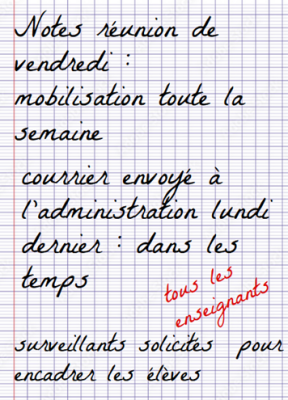 Notes réunion de
vendredi :
mobilisation toute la
semaine
courrier envoyé à
l'administration lundi
dernier : dans les
temps
tous les
enseignants
surveillants solicités pour
encadrer les élèves